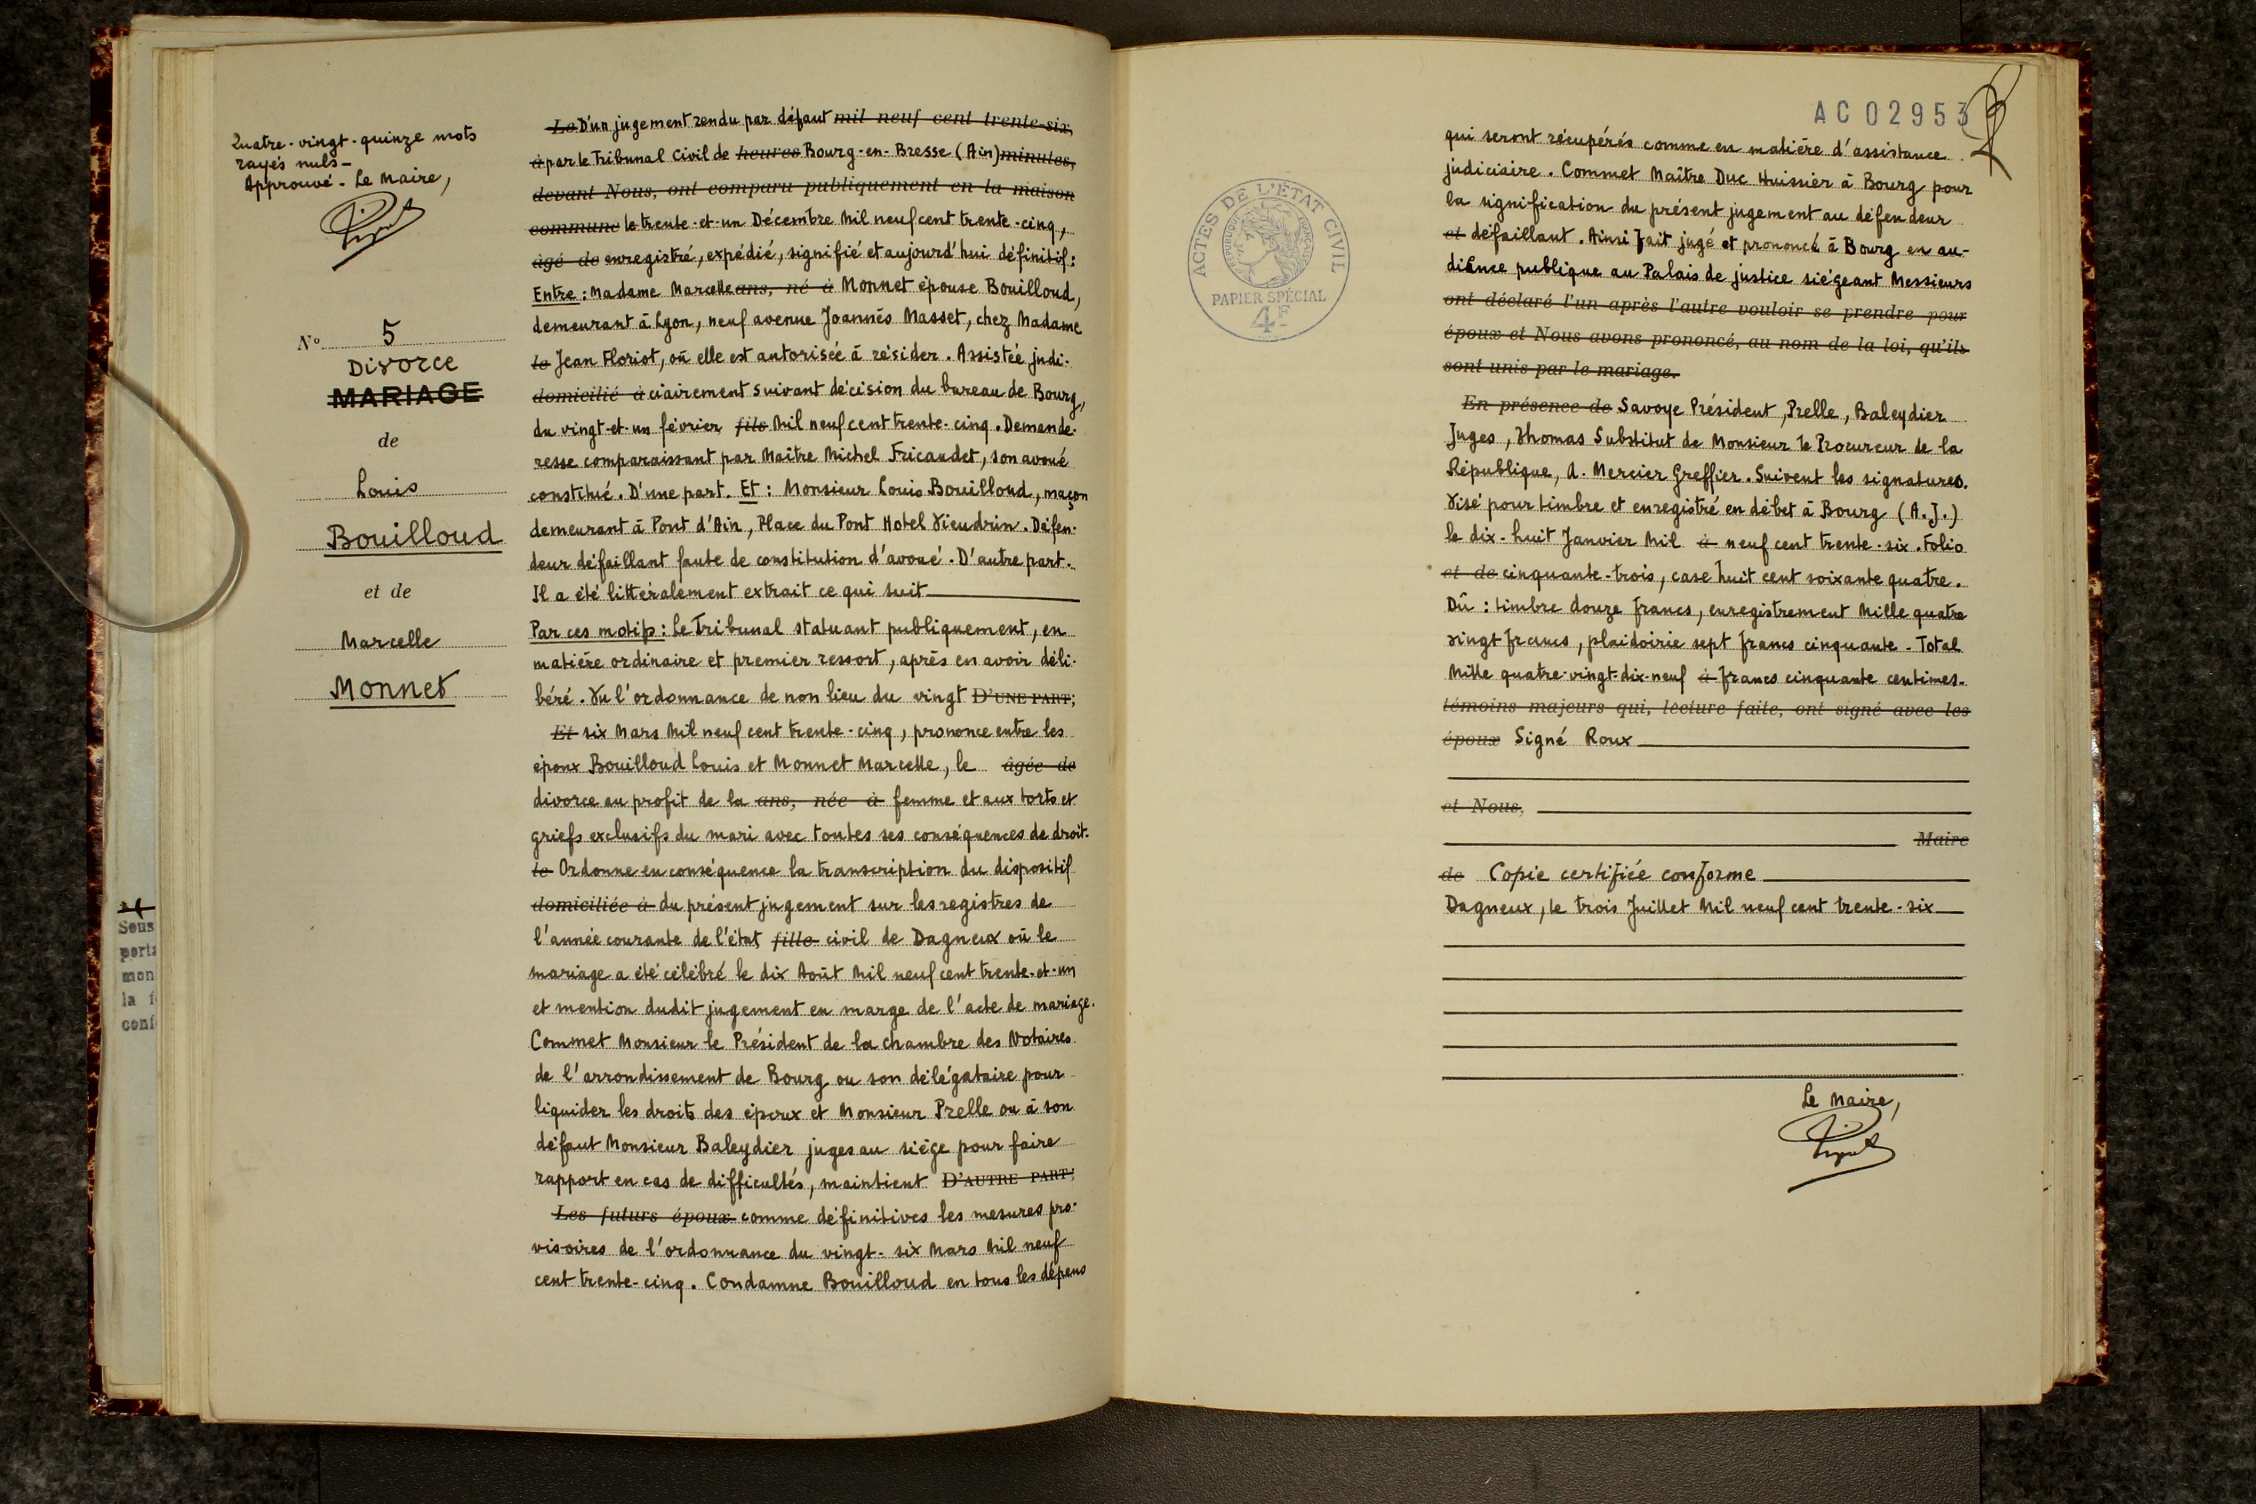 Quatre-vingt-quinze mots
rayés nuls -
Approuvé - Le Maire,
N° 5
Divorce
MARIAGE
de
Louis
Bouilloud
et de
Marcelle
Monnet
Le D'un jugement rendu par défaut mil neuf cent trente-six,
à par le Tribunal Civil de heures Bourg-en-Bresse (Ain) minutes,
devant Nous, ont comparu publiquement en la maison
commune le trente-et-un Décembre Mil neuf cent trente-cinq,
âgé de enregistré, expédié, signifié et aujourd'hui définitif:
Entre: Madame Marcelle ans, né à Monnet épouse Bouilloud,
demeurant à Lyon, neuf avenue Joannès Masset, chez Madame
le Jean Floriot, où elle est autorisée à résider. Assistée judi-
domicilié à ciairement suivant décision du bureau de Bourg,
du vingt-et-un février fils Mil neuf cent trente-cinq. Demande-
resse comparaissant par Maître Michel Fricaudet, son avoué
constitué. D'une part. Et: Monsieur Louis Bouilloud, maçon
demeurant à Pont d'Ain, Place du Pont Hotel Vieudrin. Défen-
deur défaillant faute de constitution d'avoué. D'autre part.
Il a été littéralement extrait ce qui suit
Par ces motifs: Le Tribunal statuant publiquement, en
matière ordinaire et premier ressort, après en avoir déli-
béré. Vu l'ordonnance de non lieu du vingt D'UNE PART;
Et six Mars Mil neuf cent trente-cinq, prononce entre les
époux Bouilloud Louis et Monnet Marcelle, le âgée de
divorce au profit de la ans, née à femme et aux torts et
griefs exclusifs du mari avec toutes ses conséquences de droit.
le Ordonne en conséquence la transcription du dispositif
domiciliée à du présent jugement sur les registres de
l'année courante de l'état fille civil de Dagneux où le
mariage a été célébré le dix Août Mil neuf cent trente-et-un
et mention dudit jugement en marge de l'acte de mariage.
Commet Monsieur le Président de la chambre des Notaires
de l'arrondissement de Bourg ou son délégataire pour
liquider les droits des époux et Monsieur Prelle ou à son
défaut Monsieur Baleydier juges au siège pour faire
rapport en cas de difficultés, maintient D'AUTRE PART;
Les futurs époux comme définitives les mesures pro-
visoires de l'ordonnance du vingt-six Mars Mil neuf
cent trente-cinq. Condamne Bouilloud en tous les dépens
Sous
mon
la f
conf
ACTES DE L'ÉTAT CIVIL
RÉPUBLIQUE FRANÇAISE
PAPIER SPÉCIAL
4F
AC 02953
qui seront récupérés comme en matière d'assistance
judiciaire. Commet Maître Duc Huissier à Bourg pour
la signification du présent jugement au défendeur
et défaillant. Ainsi fait jugé et prononcé à Bourg en au-
dience publique au Palais de justice siégeant Messieurs
ont déclaré l'un après l'autre vouloir se prendre pour
époux et Nous avons prononcé, au nom de la loi, qu'ils
sont unis par le mariage.
En présence de Savoye Président, Prelle, Baleydier
Juges, Thomas Substitut de Monsieur le Procureur de la
République, A. Mercier Greffier. Suivent les signatures.
Visé pour timbre et enregistré en débet à Bourg (A.J.)
le dix-huit Janvier Mil à neuf cent trente-six. Folio
et de cinquante-trois, case huit cent soixante quatre.
Dû: timbre douze francs, enregistrement Mille quatre
vingt francs, plaidoirie sept francs cinquante - Total
Mille quatre-vingt-dix-neuf à francs cinquante centimes.
témoins majeurs qui, lecture faite, ont signé avec les
époux Signé Roux
et Nous,
Maire
de Copie certifiée conforme
Dagneux, le trois Juillet Mil neuf cent trente-six
Le Maire,